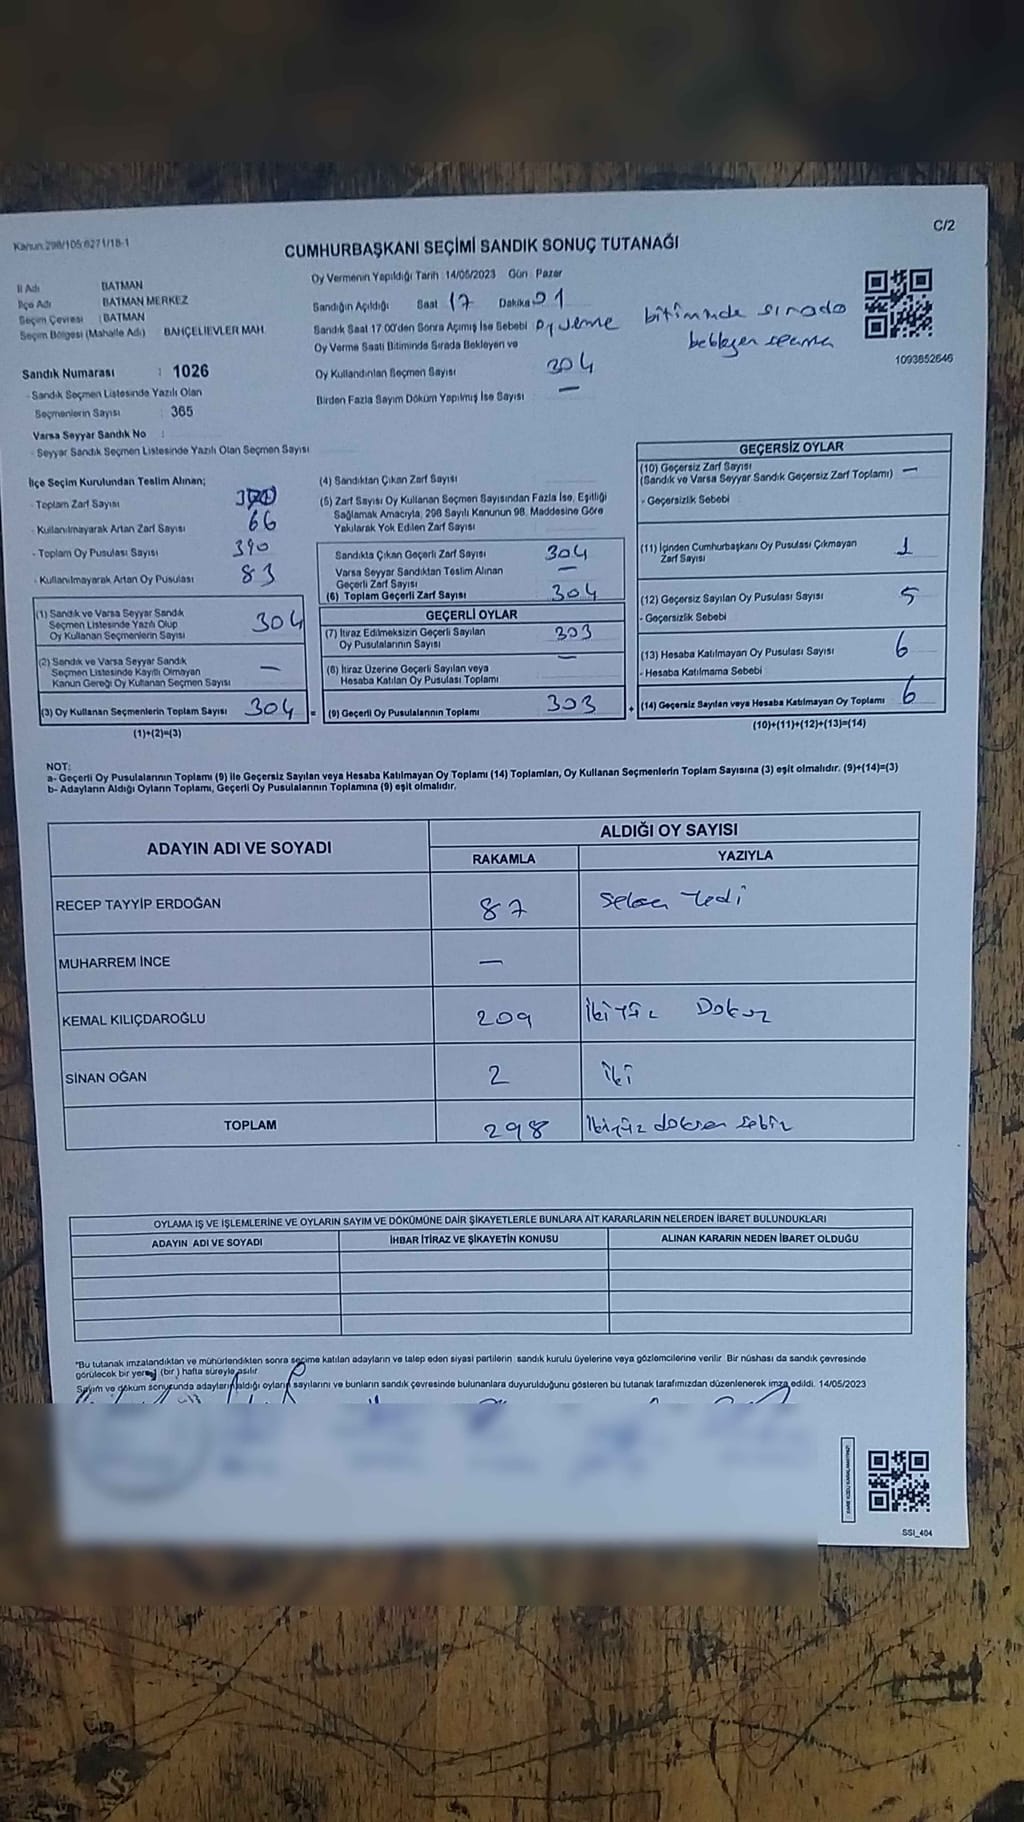 Kanun:298/105;6271/18-1
C/2
CUMHURBAŞKANI SEÇİMİ SANDIK SONUÇ TUTANAĞI
İl Adı BATMAN
İlçe Adı BATMAN MERKEZ
Seçim Çevresi : BATMAN
Seçim Bölgesi (Mahalle Adı) BAHÇELİEVLER MAH.
Oy Vermenin Yapıldığı Tarih :14/05/2023 Gün : Pazar
Sandığın Açıldığı Saat 17 Dakika 01
Sandık Saat 17:00'den Sonra Açılmış İse Sebebi oy verme bitiminde sırada
bekleyen
Oy Verme Saati Bitiminde Sırada Bekleyen ve
Oy Kullandırılan Seçmen Sayısı 304
Birden Fazla Sayım Döküm Yapılmış İse Sayısı —
1093852646
Sandık Numarası : 1026
- Sandık Seçmen Listesinde Yazılı Olan
Seçmenlerin Sayısı : 365
Varsa Seyyar Sandık No :
- Seyyar Sandık Seçmen Listesinde Yazılı Olan Seçmen Sayısı
İlçe Seçim Kurulundan Teslim Alınan;
- Toplam Zarf Sayısı
- Kullanılmayarak Artan Zarf Sayısı 66
- Toplam Oy Pusulası Sayısı 390
- Kullanılmayarak Artan Oy Pusulası 83
(1) Sandık ve Varsa Seyyar Sandık
Seçmen Listesinde Yazılı Olup
Oy Kullanan Seçmenlerin Sayısı 304
(2) Sandık ve Varsa Seyyar Sandık
Seçmen Listesinde Kayıtlı Olmayan
Kanun Gereği Oy Kullanan Seçmen Sayısı —
(3) Oy Kullanan Seçmenlerin Toplam Sayısı 304 =
(1)+(2)=(3)
(4) Sandıktan Çıkan Zarf Sayısı
(5) Zarf Sayısı Oy Kullanan Seçmen Sayısından Fazla İse, Eşitliği
Sağlamak Amacıyla, 298 Sayılı Kanunun 98. Maddesine Göre
Yakılarak Yok Edilen Zarf Sayısı
Sandıkta Çıkan Geçerli Zarf Sayısı 304
Varsa Seyyar Sandıktan Teslim Alınan
Geçerli Zarf Sayısı —
(6) Toplam Geçerli Zarf Sayısı 304
GEÇERLİ OYLAR
(7) İtiraz Edilmeksizin Geçerli Sayılan
Oy Pusulalarının Sayısı 303
(8) İtiraz Üzerine Geçerli Sayılan veya
Hesaba Katılan Oy Pusulası Toplamı —
(9) Geçerli Oy Pusulalarının Toplamı 303 +
GEÇERSİZ OYLAR
(10) Geçersiz Zarf Sayısı
(Sandık ve Varsa Seyyar Sandık Geçersiz Zarf Toplamı) —
- Geçersizlik Sebebi
(11) İçinden Cumhurbaşkanı Oy Pusulası Çıkmayan
Zarf Sayısı 1
(12) Geçersiz Sayılan Oy Pusulası Sayısı 5
- Geçersizlik Sebebi
(13) Hesaba Katılmayan Oy Pusulası Sayısı 6
- Hesaba Katılmama Sebebi
(14) Geçersiz Sayılan veya Hesaba Katılmayan Oy Toplamı 6
(10)+(11)+(12)+(13)=(14)
NOT:
a- Geçerli Oy Pusulalarının Toplamı (9) ile Geçersiz Sayılan veya Hesaba Katılmayan Oy Toplamı (14) Toplamları, Oy Kullanan Seçmenlerin Toplam Sayısına (3) eşit olmalıdır. (9)+(14)=(3)
b- Adayların Aldığı Oyların Toplamı, Geçerli Oy Pusulalarının Toplamına (9) eşit olmalıdır.
ADAYIN ADI VE SOYADI ALDIĞI OY SAYISI
RAKAMLA YAZIYLA
RECEP TAYYİP ERDOĞAN 87 Seksen Yedi
MUHARREM İNCE —
KEMAL KILIÇDAROĞLU 209 İkiYüz Dokuz
SİNAN OĞAN 2 iki
TOPLAM 298 İkiyüz doksan sekiz
OYLAMA İŞ VE İŞLEMLERİNE VE OYLARIN SAYIM VE DÖKÜMÜNE DAİR ŞİKAYETLERLE BUNLARA AİT KARARLARIN NELERDEN İBARET BULUNDUKLARI
ADAYIN ADI VE SOYADI İHBAR İTİRAZ VE ŞİKAYETİN KONUSU ALINAN KARARIN NEDEN İBARET OLDUĞU
"Bu tutanak imzalandıktan ve mühürlendikten sonra seçime katılan adayların ve talep eden siyasi partilerin sandık kurulu üyelerine veya gözlemcilerine verilir. Bir nüshası da sandık çevresinde
görülecek bir yere (bir) hafta süreyle asılır.
Sayım ve döküm sonucunda adayların aldığı oyların sayılarını ve bunların sandık çevresinde bulunanlara duyurulduğunu gösteren bu tutanak tarafımızdan düzenlenerek imza edildi. 14/05/2023
SSI_404